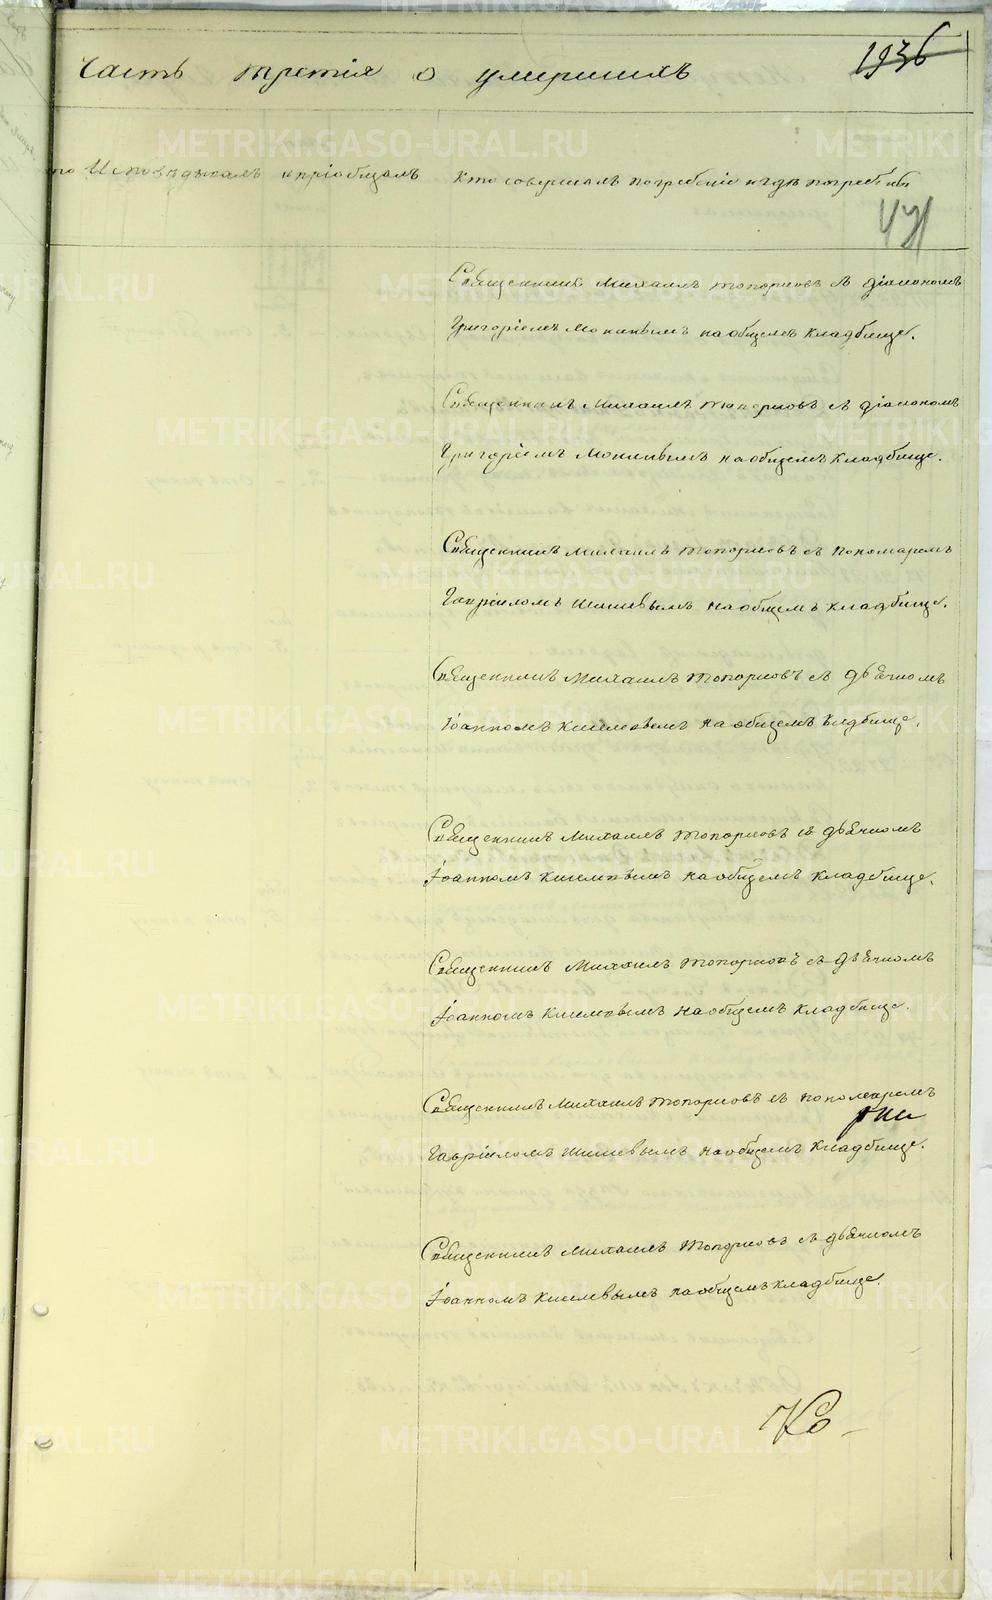 1936
Часть третія о умершихъ
Исповѣдывалъ и пріобщалъ
Кто совершалъ погребеніе и гдѣ погребены
Священникъ Михаилъ Топорковъ съ діакономъ
Григоріемъ на общемъ кладбище.
Священникъ Михаилъ Топорковъ съ діакономъ
Григоріемъ на общемъ кладбище.
Священникъ Михаилъ Топорковъ съ пономаремъ
Гавріиломъ на общемъ кладбище.
Священникъ Михаилъ Топорковъ съ дьячкомъ
Іоанномъ на общемъ кладбище.
Священникъ Михаилъ Топорковъ съ дьячкомъ
Іоанномъ на общемъ кладбище.
Священникъ Михаилъ Топорковъ съ дьячкомъ
Іоанномъ на общемъ кладбище.
Священникъ Михаилъ Топорковъ съ пономаремъ
Гавріиломъ на общемъ кладбище.
Священникъ Михаилъ Топорковъ съ дьячкомъ
Іоанномъ на общемъ кладбище.
METRIKI.GASO-URAL.RU